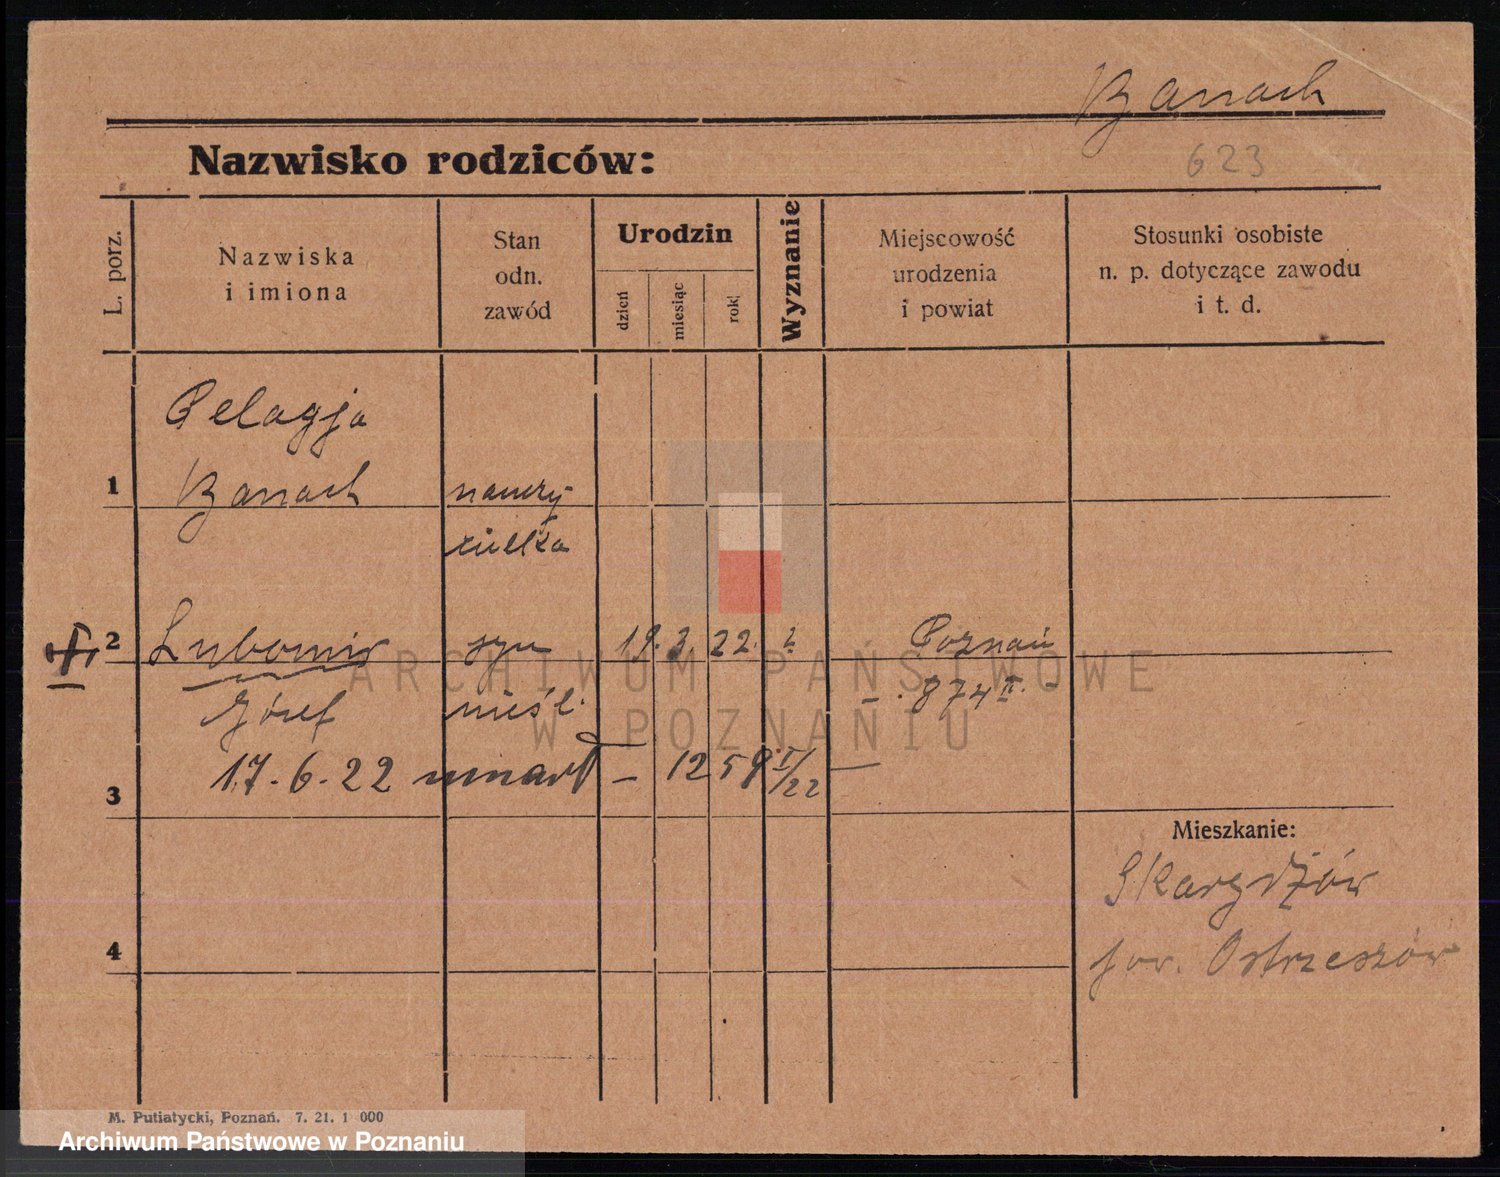 Banach
Nazwisko rodziców:
623
L. porz.
Nazwiska
i imiona
Stan
odn.
zawód
Urodzin
dzień
miesiąc
rok
Wyznanie
Miejscowość
urodzenia
i powiat
Stosunki osobiste
n. p. dotyczące zawodu
i t. d.
Pelagja
1 Banach nauczy
cielka
2 Lubomir syn 19. 3. 22. ? Poznań
Józef nieśl. - 874 II. -
17.6.22 umarł - 1259 I/22 -
3
Mieszkanie:
pow. Ostrzeszów
4
ARCHIWUM PAŃSTWOWE
W POZNANIU
M. Putiatycki, Poznań. 7. 21. 1 000
Archiwum Państwowe w Poznaniu